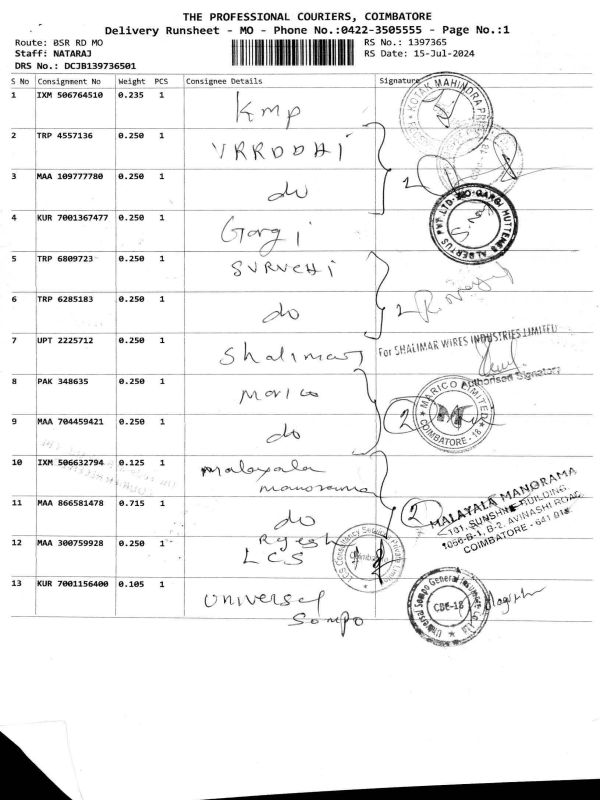 THE PROFESSIONAL COURIERS, COIMBATORE
Delivery Runsheet - MO - Phone No.:0422-3505555 - Page No.:1
Route: BSR RD MO RS No.: 1397365
Staff: NATARAJ RS Date: 15-Jul-2024
DRS No.: DCJB139736501
S No Consignment No Weight PCS Consignee Details Signature
1 IXM 506764510 0.235 1 Kmp KOTAK MAHINDRA
2 TRP 4557136 0.250 1 VRRDDHI
3 MAA 109777780 0.250 1 do 2
4 KUR 7001367477 0.250 1 Gargi GARGI HUTTENES ALBERTUS PVT. LTD.
5 TRP 6809723 0.250 1 SURUCHI
6 TRP 6285183 0.250 1 do 2
7 UPT 2225712 0.250 1 Shalimar For SHALIMAR WIRES INDUSTRIES LIMITED
Authorised Signatory
8 PAK 348635 0.250 1 Marico MARICO LIMITED
COIMBATORE - 18
9 MAA 704459421 0.250 1 do 2
10 IXM 506632794 0.125 1 malayala
manorama
MALAYALA MANORAMA
11 MAA 866581478 0.715 1 do 2
101, SUNSHINE BUILDING,
1056-B-1, B-2, AVINASHI ROAD,
COIMBATORE - 641 018
12 MAA 300759928 0.250 1 Rajesh
LCS LCS Consultancy Services Private
13 KUR 7001156400 0.105 1 Universal
Sompo
Universal Sompo General Insurance Co. Ltd.
CBE-18